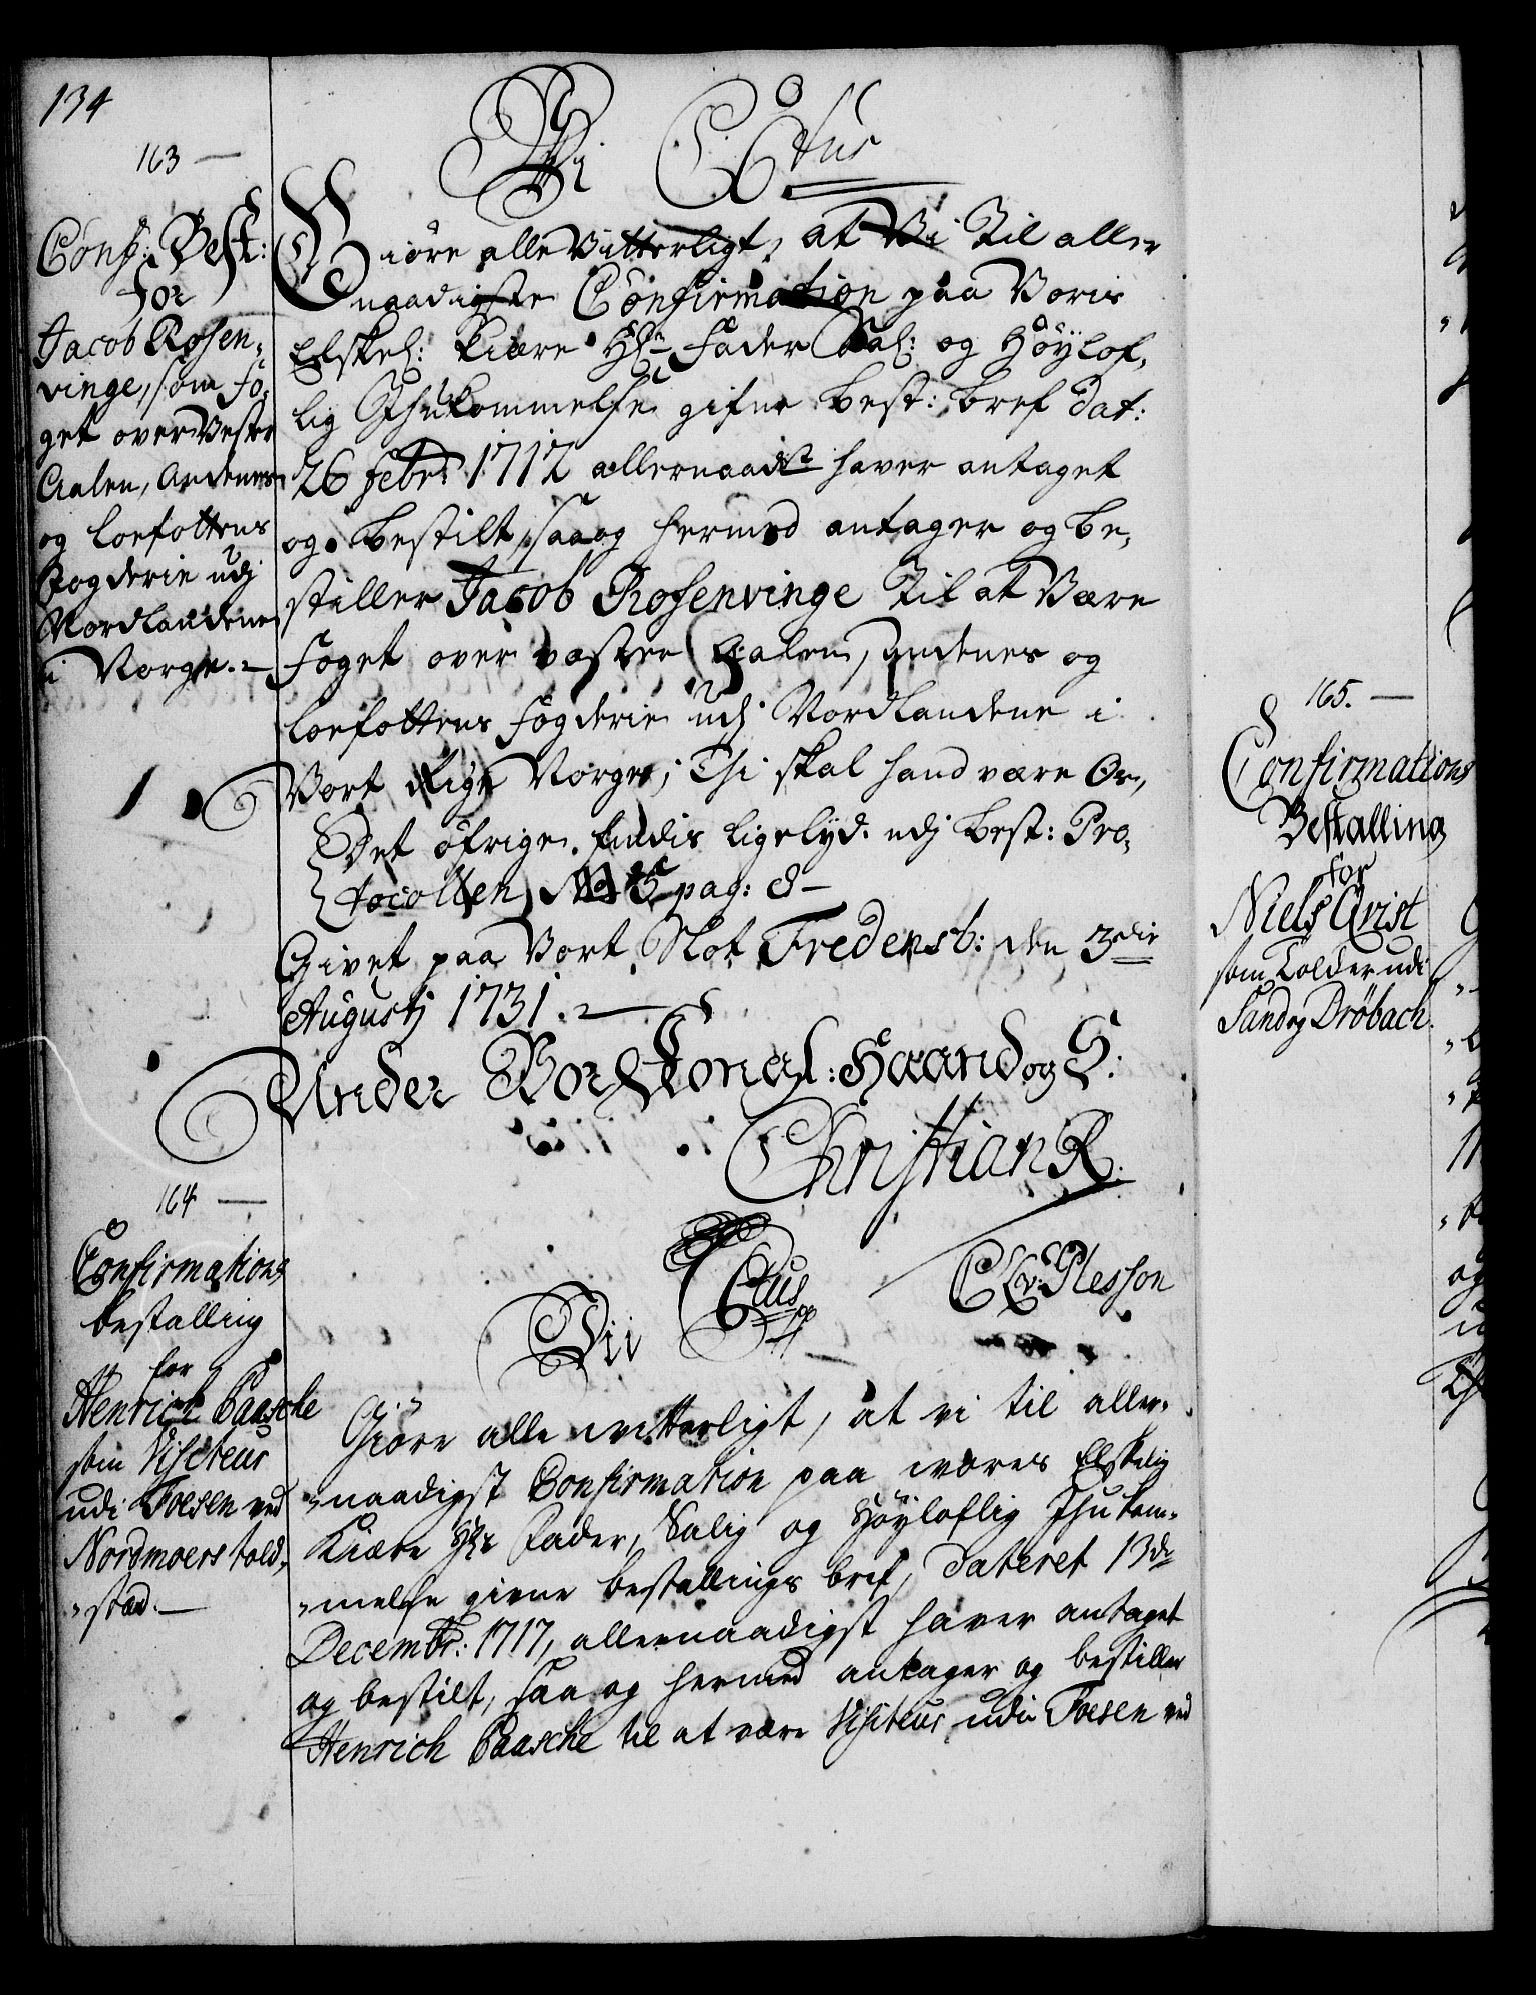 134
163 —
Conf: Best:
for
Jacob Rosen,
vinge, som Fo,
get over Vester
Aalen, Andenes
og Loefottens
Fogderie udj
Nordlandene
i Norge.
Vi C 6tus
Giöre alle Vitterligt, at Vi Til aller
naadigste Confirmation paa Voris
Elskel: Kiære Hr Fader Sal: og Höylof,
lig Ihukommelse gifne Best: Bref Dat:
26 Febr: 1712 allernaadst haver antaget
og bestilt, saa og hermed antager og be,
stiller Jacob Rosenvinge Til at Være
Foget over Vester Aalen, Andenes og
Loefottens Fogderie udj Nordlandene i
Vort Rige Norge; Thi skal hand være Or,
Det öfrige findis ligelyd. udj Best: Pro,
tocollen No 5 pag: 8 –
Givet paa Vort Slot Fredensb: den 3die
Augustj 1731.
Under Vor Kongl: Haand og S:
Christian R.
C A v: Plesson
164 —
Confirmations
bestalling
for
Henrich Paasche
som Visiteur
udi Foesen ved
Nordmoers told,
„stæd. —
Vii C6tus
Giöre alle witterligt, at vi til aller,
„naadigst Confirmation paa wores Elskelig
Kiære Hr Fader, Salig og Höyloflig Ihukom,
„melse givne bestallings bref, Dateret 13de
Decembr: 1717, allernaadigst haver antaget
og bestilt, saa og hermed antager og bestiller
Henrich Paasche til at være Visiteur udi Foesen ved
165. —
Confirmations
Bestalling
for
Niels Qvist
som Tolder udi
Sand og Dröbach.